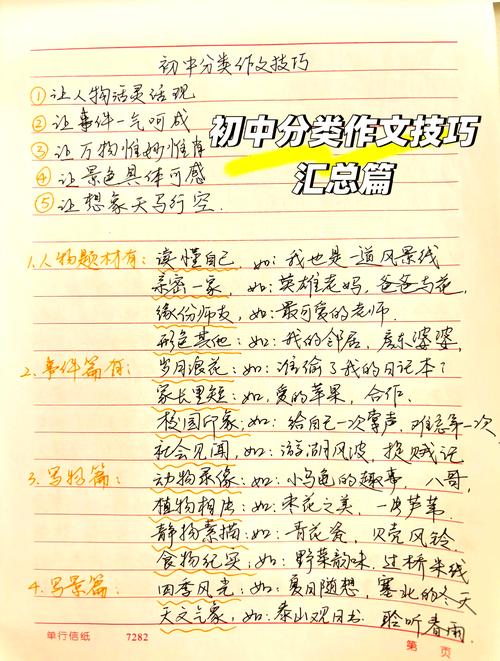 初中分类作文技巧
①让人物活灵活现
②让事件一气呵成
③让万物惟妙惟肖
④让景色具体可感
⑤让想象天马行空.
初中分类作文技巧
汇总篇
1.人物题材有：读懂自己，如：我也是一道风景线
亲密一家，如：英雄老妈，爸爸与花，
缘份师友，如：最可爱的老师.
形色其他：如：我的邻居，房东婆婆，
2.事件篇有：岁月浪花：如：谁偷了我的日记本？
家长里短：如，爱的苹果，合作.
校园印象：如：给自己一次掌声，难忘第一次
社会见闻，如：游湖风波，捉贼记
3.写物篇：动物录像：如：小乌龟的趣事，八哥，
植物相片：如：枣花之美，一片芦苇.
静物素描：如：青花瓷，贝壳风铃.
食物纪实，如：野菜韵味，过桥米线
4.写景篇：四季风光：如：夏日随想，塞北的冬天
天文气象，如：泰山观日出. 聆听春雨.
单行信纸 7282 第 页